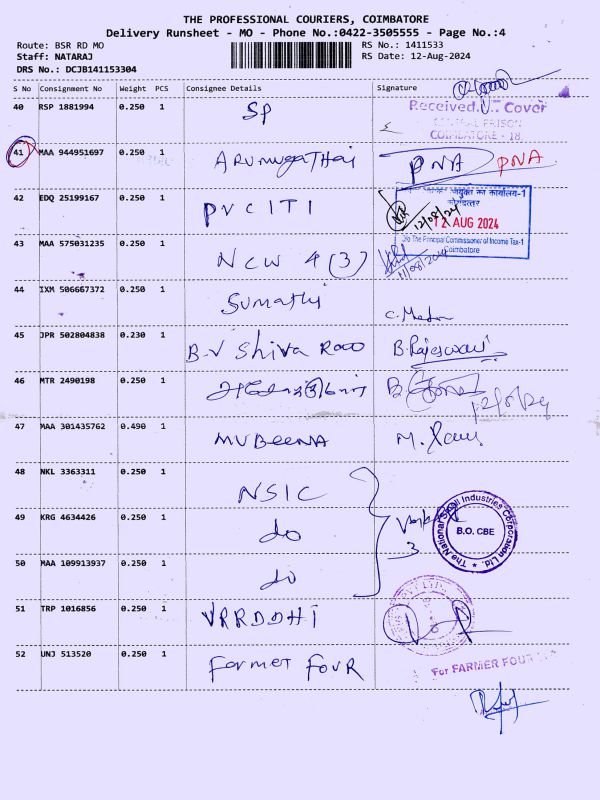 THE PROFESSIONAL COURIERS, COIMBATORE
Delivery Runsheet - MO - Phone No.:0422-3505555 - Page No.:4
Route: BSR RD MO
RS No.: 1411533
Staff: NATARAJ
RS Date: 12-Aug-2024
DRS No.: DCJB141153304
S No Consignment No Weight PCS Consignee Details Signature
40 RSP 1881994 0.250 1 SP
Received Cover
CENTRAL PRISON
COIMBATORE - 18
41 MAA 944951697 0.250 1 Arumugathai PNA PNA
42 EDQ 25199167 0.250 1 PVCITI
आयुक्त का कार्यालय-1
12/08/24
12 AUG 2024
O/o The Principal Commissioner of Income Tax-1
Coimbatore
43 MAA 575031235 0.250 1 NCW 4 (3)
44 IXM 506667372 0.250 1 Sumathi
45 JPR 502804838 0.230 1 B.V Shiva Rao B.Rajeswari
46 MTR 2490198 0.250 1
12/8/24
47 MAA 301435762 0.490 1 MVBeena
48 NKL 3363311 0.250 1 NSIC
49 KRG 4634426 0.250 1 do
3
The National Small Industries Corporation Ltd.
B.O. CBE
50 MAA 109913937 0.250 1 do
51 TRP 1016856 0.250 1 VRRDDHI
52 UNJ 513520 0.250 1 Farmer Four
For FARMER FOUR